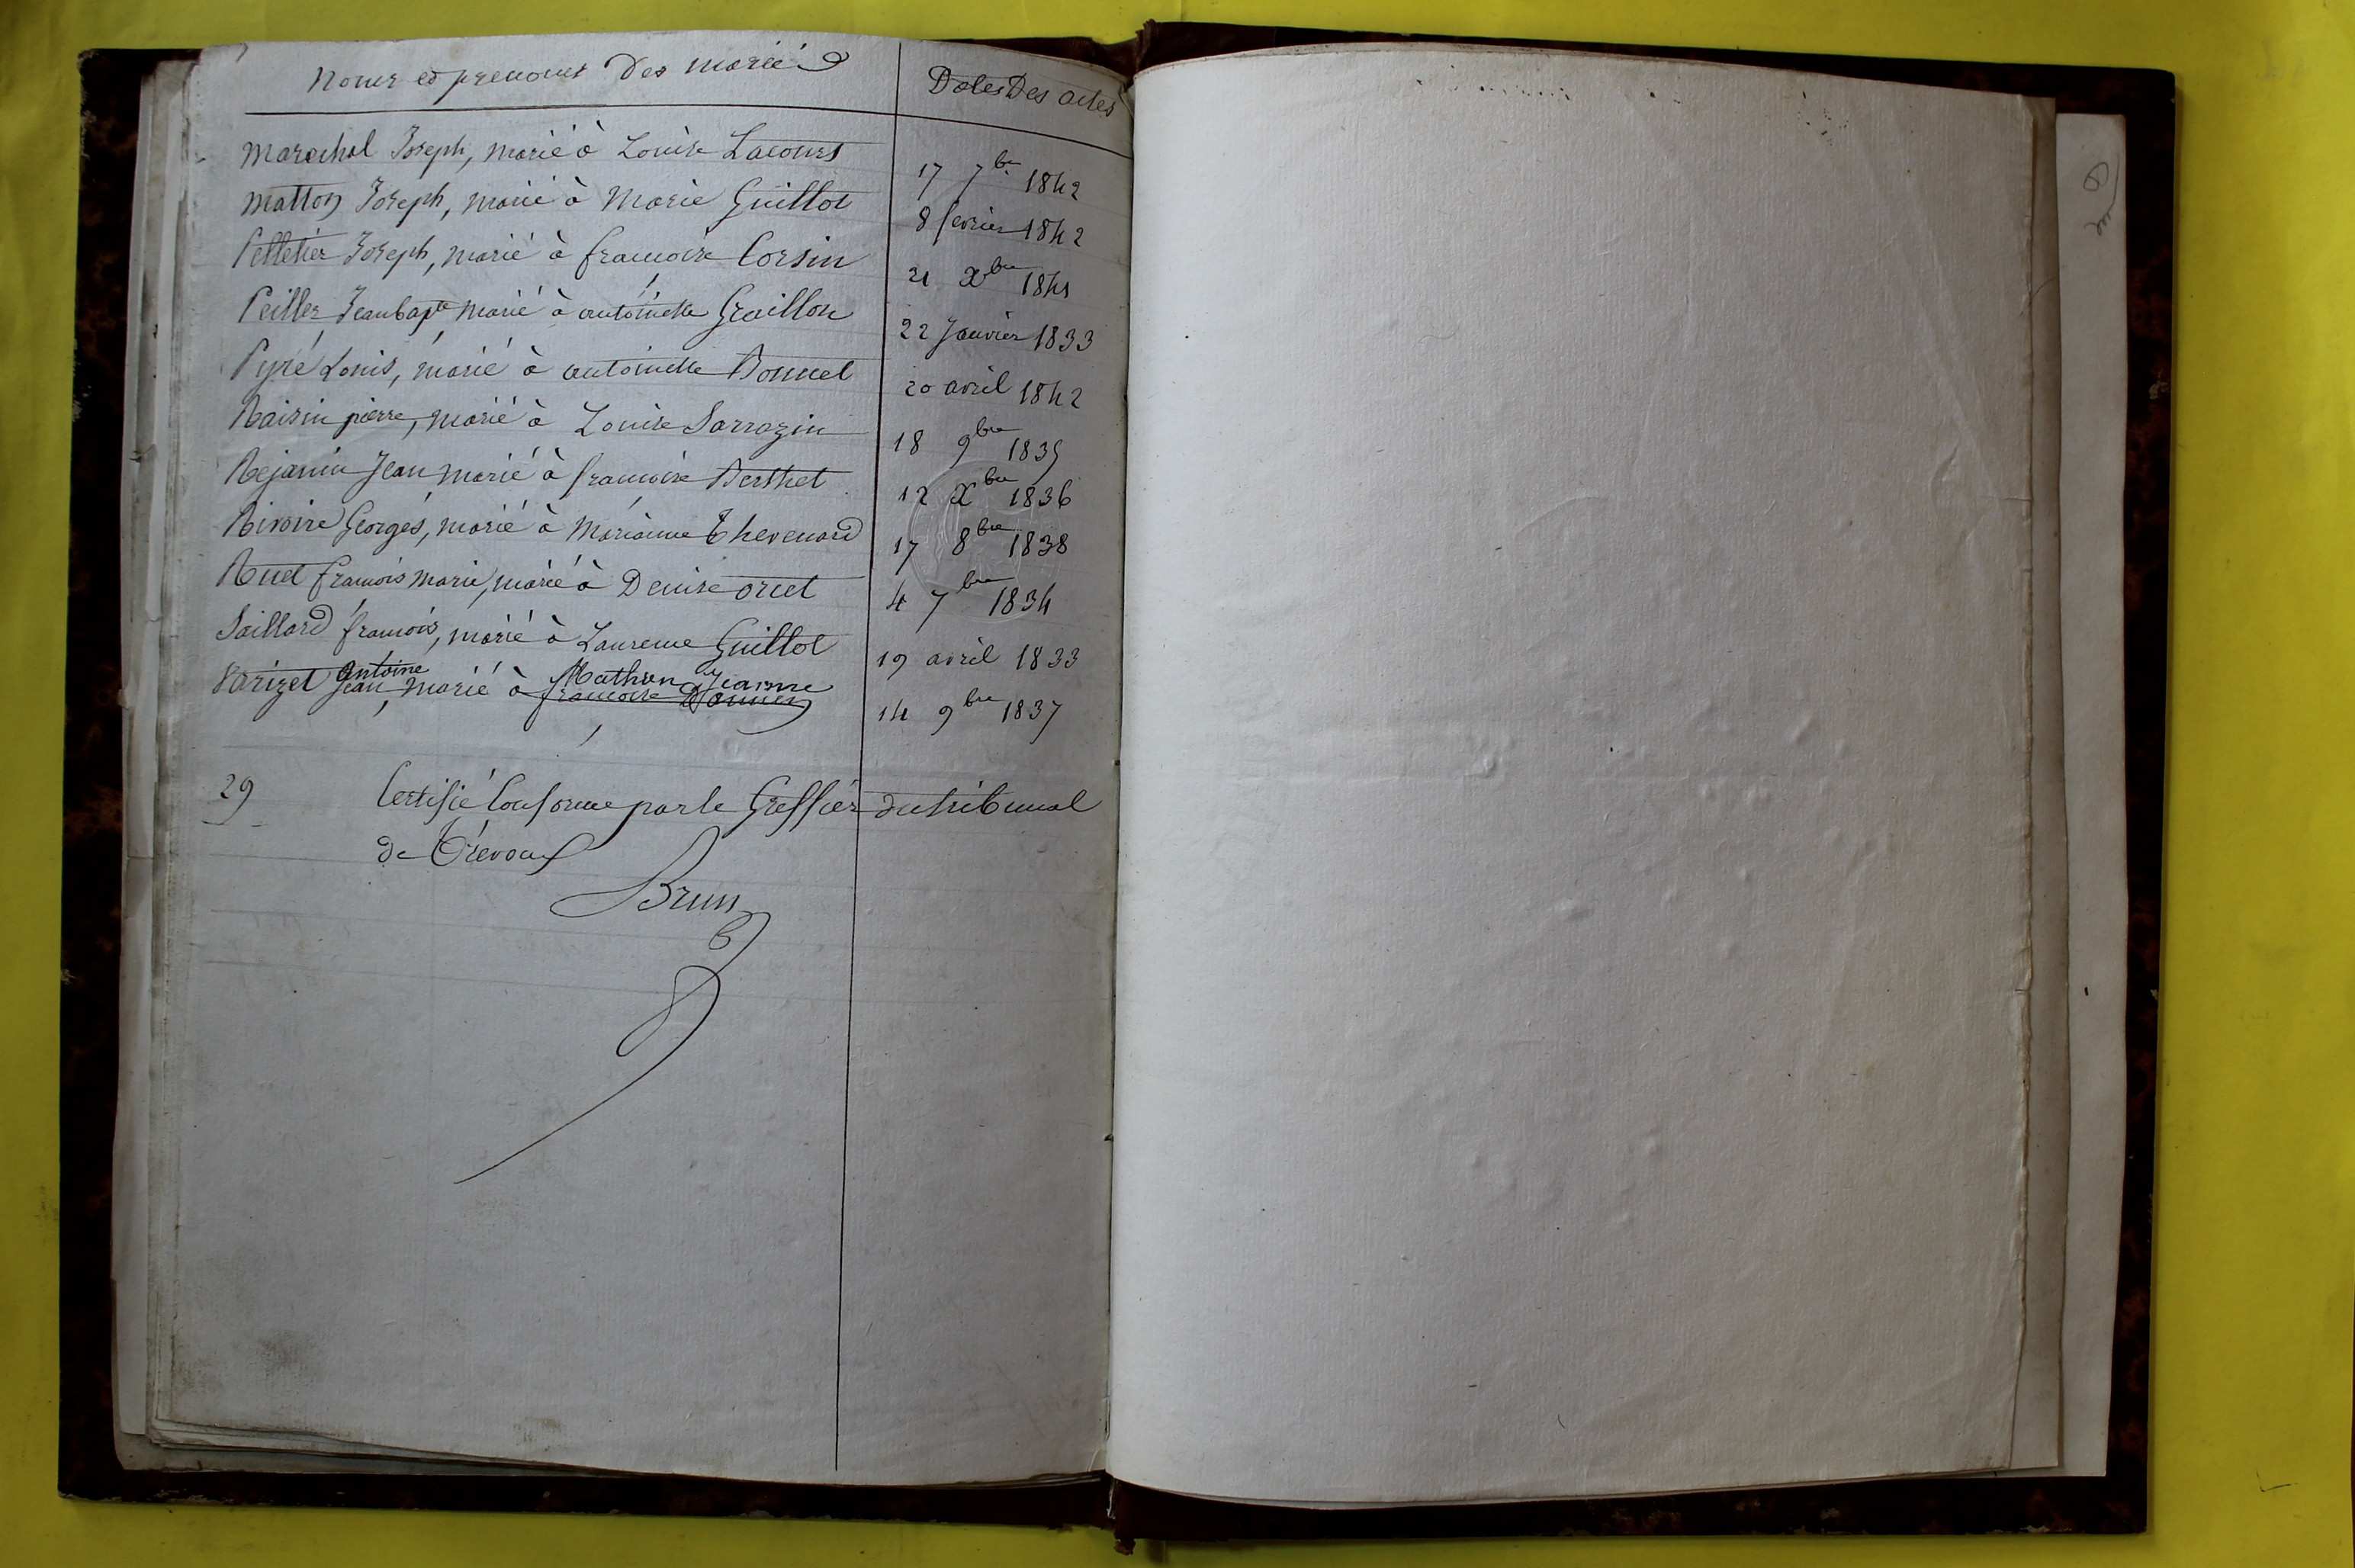 Noms et prenoms Des mariés Dates Des actes
Marechal Joseph, marié à Louise Lacourt 17 7bre 1842
Matton Joseph, marié à Marie Guillot 8 fevrier 1842
Pelletier Joseph, marié à francoise Corsin 21 Xbre 1841
Peiller Jean bapte marié à antoinette Graillon 22 Janvier 1833
Pyré Louis, marié à antoinette Bonnet 20 avril 1842
Raisin pierre, marié à Louise Sarrazin 18 9bre 1835
Rejanin Jean marié à francoise Berthet 12 Xbre 1836
Rivoire Georges, marié à Marianne Thevenard 17 8bre 1838
Ruet francois marie, marié à Denise oruet 4 7bre 1834
Saillard francois, marié à Laurence Guillot 19 avril 1833
Antoine Mathun Jeanne
Varizet Jean, marié à francoise 14 9bre 1837
29 Certifié Conforme par le Greffier du tribunal
de Trévoux
Brun